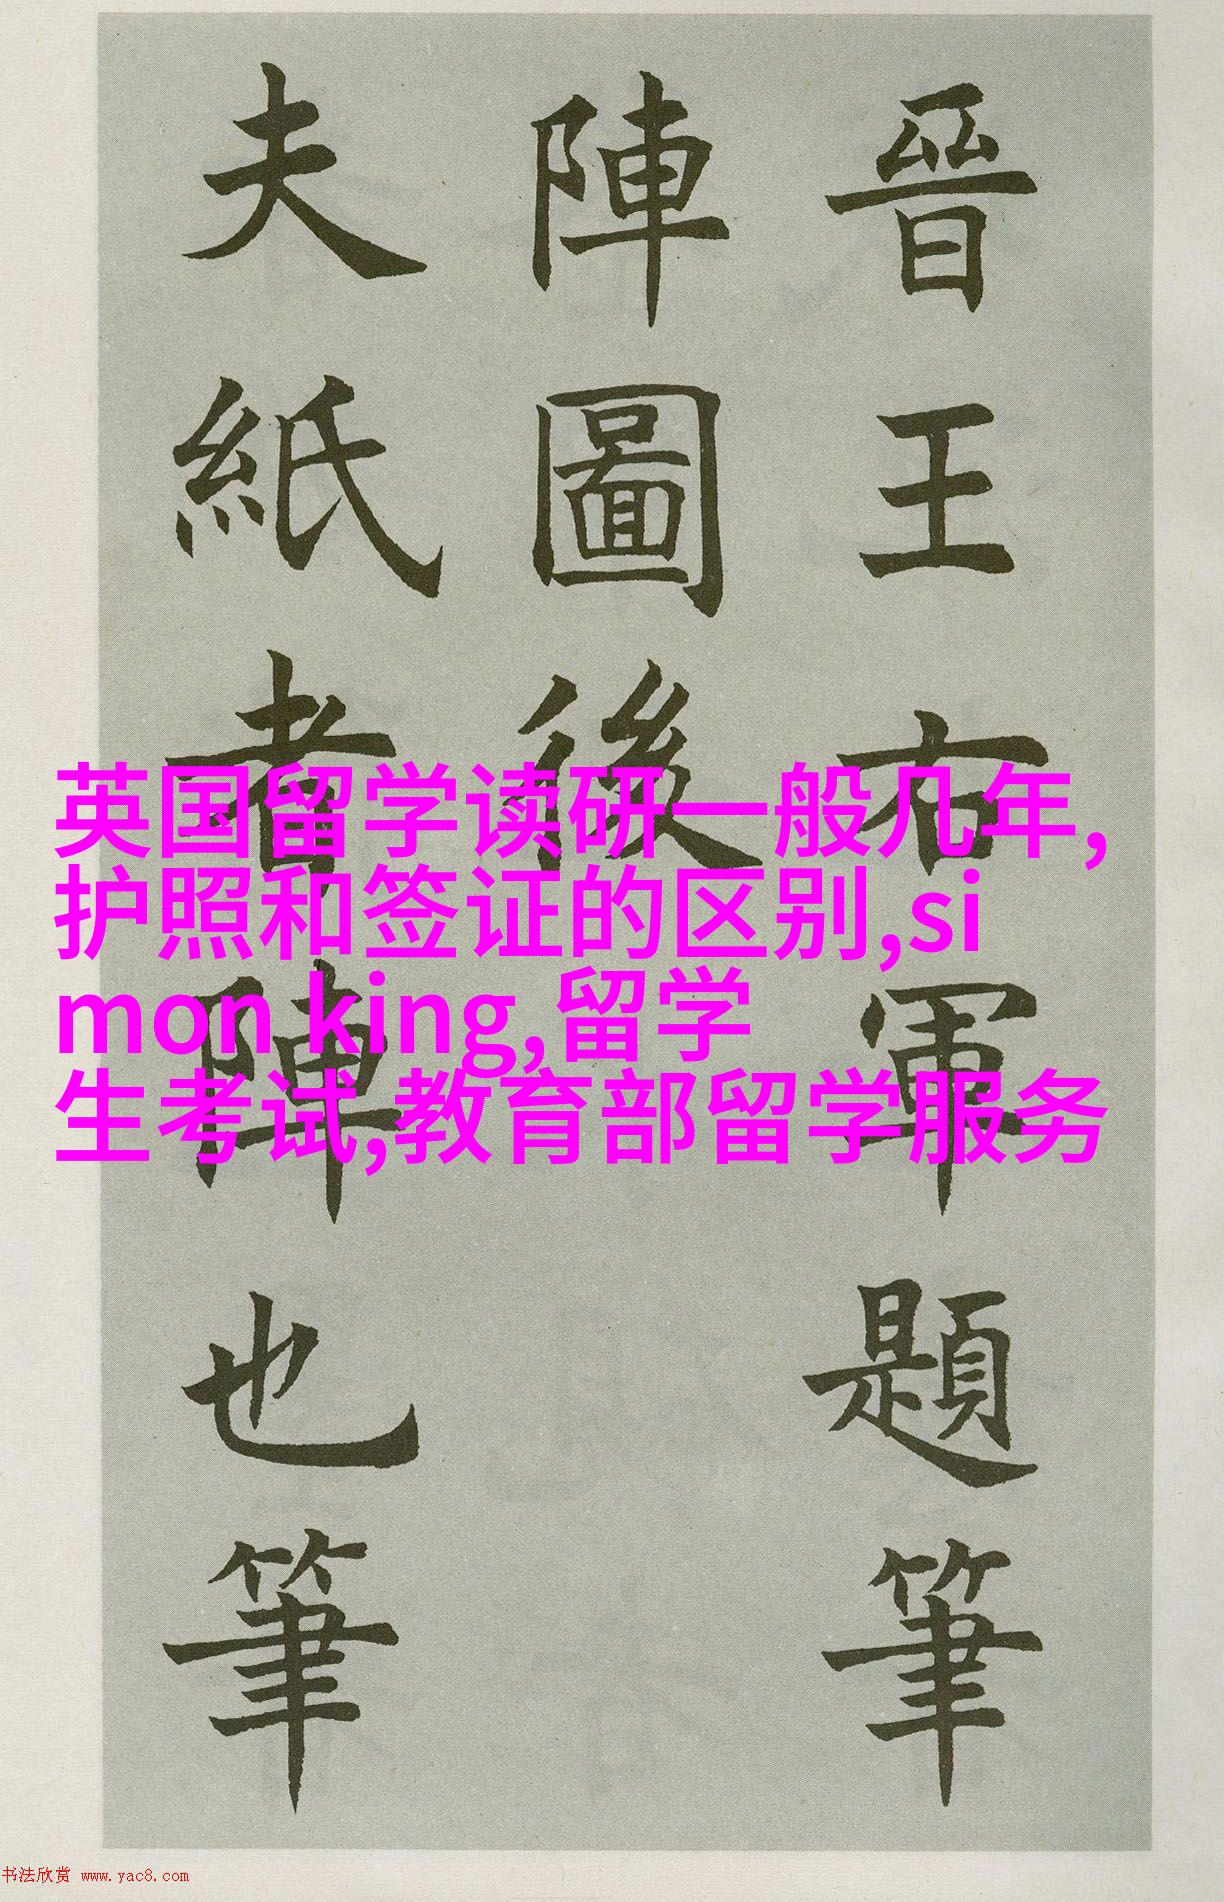 晉王右軍題筆
陣圖後
夫紙者陣也筆
英国留学读研一般几年,
护照和签证的区别,si
mon king,留学
生考试,教育部留学服务
书法欣赏 www.yac8.com